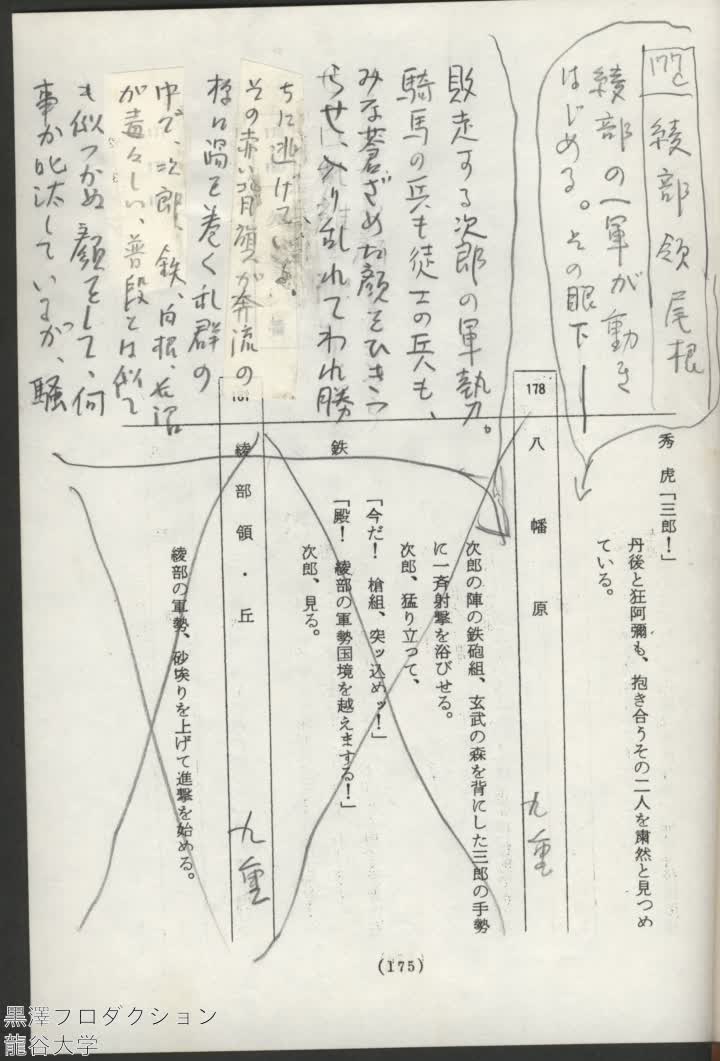 177C
綾部領尾根
綾部の一軍が動き
はじめる。その眼下
敗走する次郎の軍勢。
騎馬の兵も徒士の兵も、
みな蒼ざめた顔をひきつ
らせ、入り乱れてわれ勝
ちに逃げている。
その赤い背旗が奔流の
様に渦を巻く乱群の
中で、次郎、鉄、白根、
が毒々しい、普段とは似て
も似つかぬ顔をして、何
事か叱汰しているが、騒
秀虎「三郎!」
丹後と狂阿彌も、抱き合うその二人を粛然と見つめ
ている。
178
八幡原
九重
次郎の陣の鉄砲組、玄武の森を背にした三郎の手勢
に一斉射撃を浴びせる。
次郎、猛り立って、
「今だ! 槍組、突ッ込めッ!」
鉄「殿! 綾部の軍勢国境を越えまする!」
次郎、見る。
綾部領・丘
九重
綾部の軍勢、砂埃りを上げて進撃を始める。
(175)
黒澤プロダクション
龍谷大学